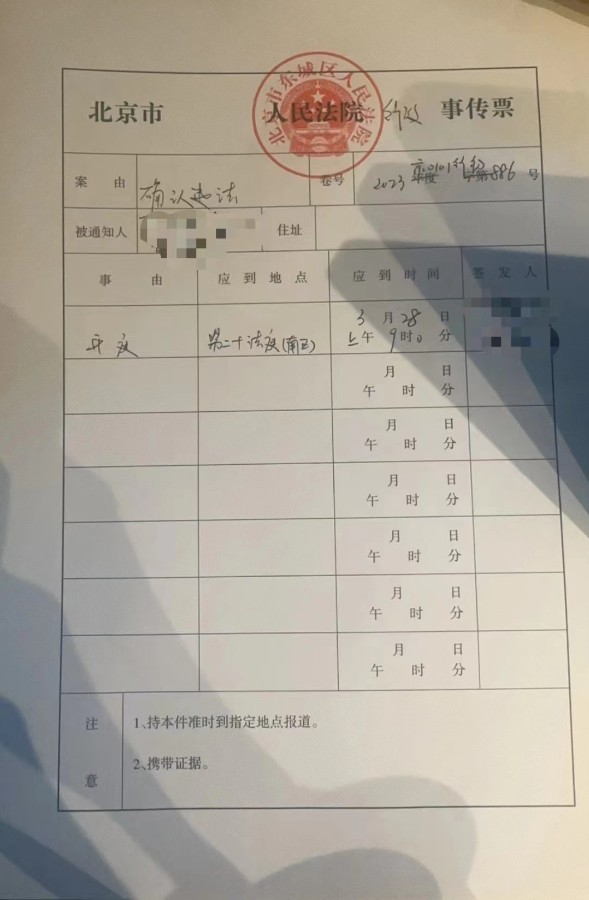 北京市东城区人民法院
北京市 人民法院 行政 事传票
案由 确认违法 卷号 2023 京0101行初 年度 字第886号
被通知人 住址
事由 应到地点 应到时间 签发人
开庭 第二十法庭(南区) 3月28日
上午9时0分
月 日
午 时 分
月 日
午 时 分
月 日
午 时 分
月 日
午 时 分
月 日
午 时 分
月 日
午 时 分
注意
1、持本件准时到指定地点报道。
2、携带证据。